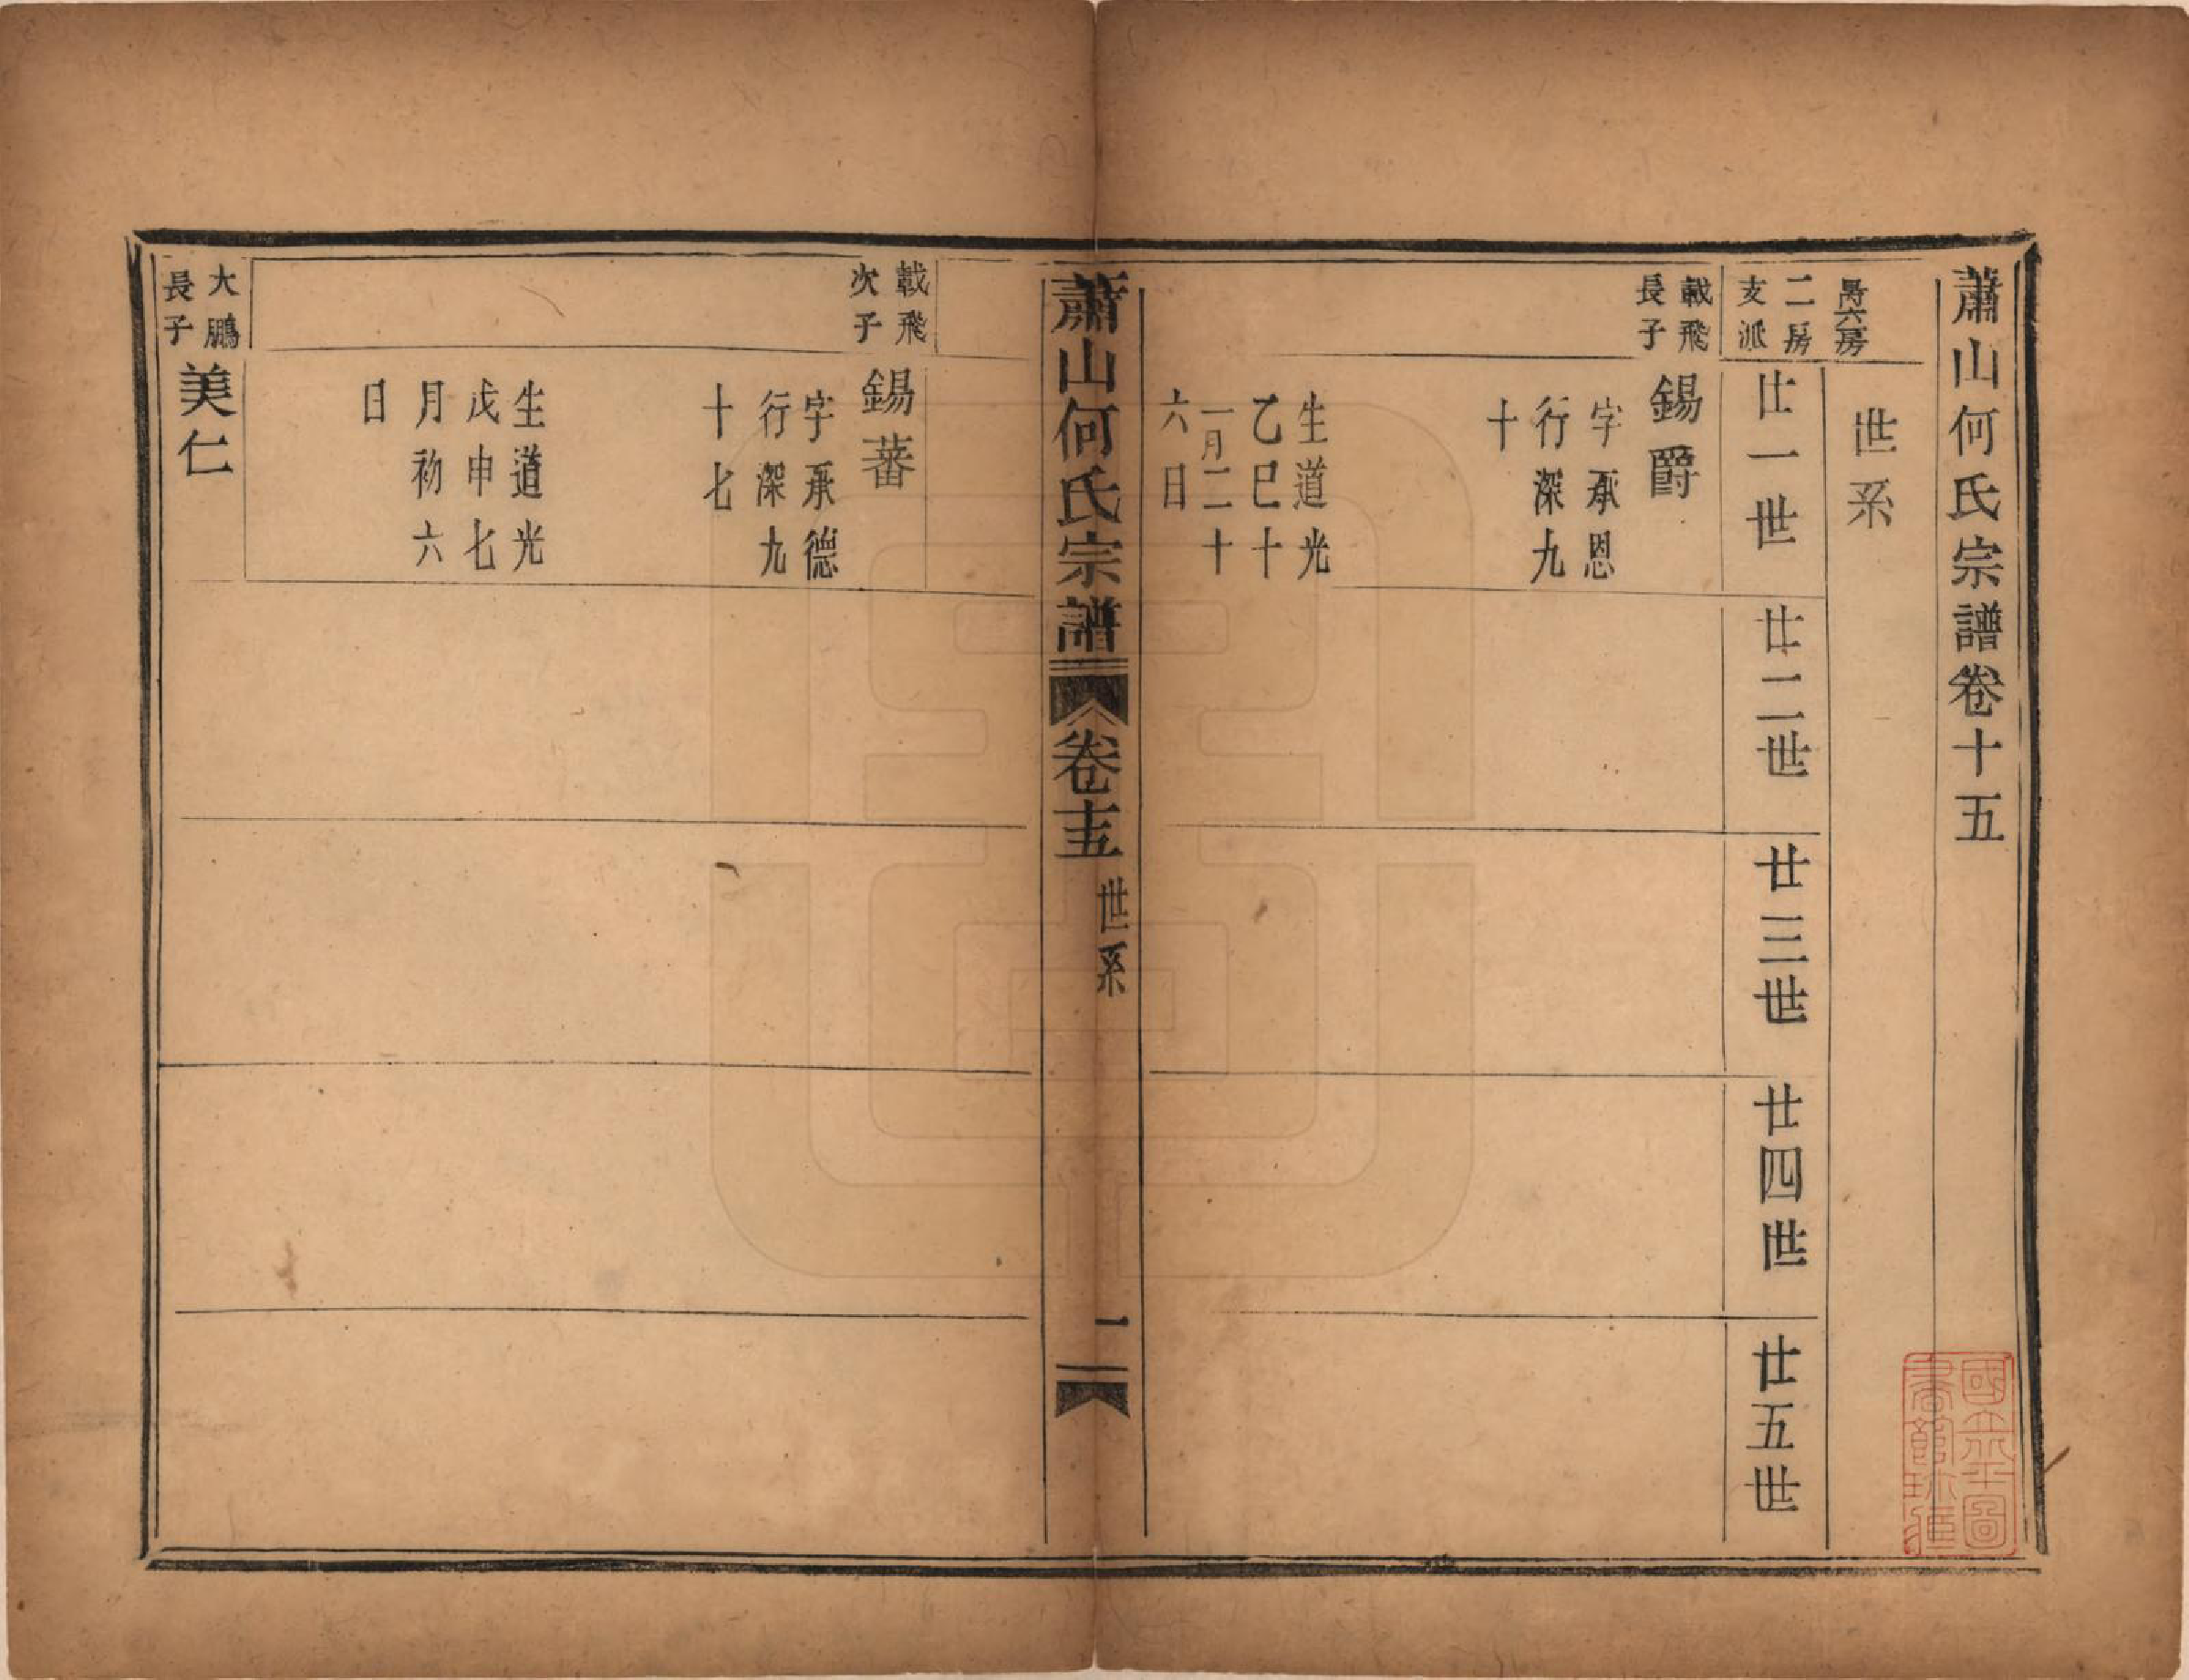 蕭山何氏宗譜卷十五
世系
房六房
二房
支派
廿一世
廿二世
廿三世
廿四世
廿五世
載飛
長子
錫爵
字承恩
行深九
十
生道光
乙巳十
一月二十
六日
蕭山何氏宗譜
卷十五
世系
一
載飛
次子
錫蕃
字承德
行深九
十七
生道光
戊申七
月初六
日
大鵬
長子
美仁
國立北平圖
書館珍藏